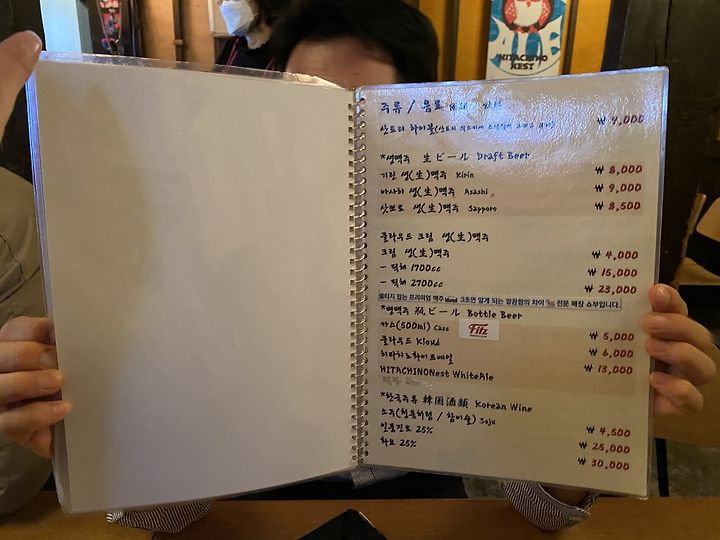 HITACHINO
NEST
주류 / 음료
산토리 하이볼 ₩ 9,000
*생맥주 生ビール Draft Beer
기린 생(生)맥주 Kirin ₩ 8,000
아사히 생(生)맥주 Asahi ₩ 9,000
삿뽀로 생(生)맥주 Sapporo ₩ 8,500
클라우드 크림 생(生)맥주
크림 생(生)맥주 ₩ 4,000
- 피쳐 1700cc ₩ 15,000
- 피쳐 2700cc ₩ 23,000
물타지 않는 프리미엄 맥주 kloud 3초면 알게 되는 깔끔함의 차이 Fitz 전문 매장 쇼부입니다.
*병맥주 瓶ビール Bottle Beer
Fitz
카스(500ml) Cass ₩ 5,000
클라우드 Kloud ₩ 6,000
히타치노화이트에일
HITACHINONest WhiteAle ₩ 13,000
*한국주류 韓国酒類 Korean Wine
소주(처음처럼 / 참이슬) Soju ₩ 4,500
일품진로 25% ₩ 25,000
화요 25% ₩ 30,000